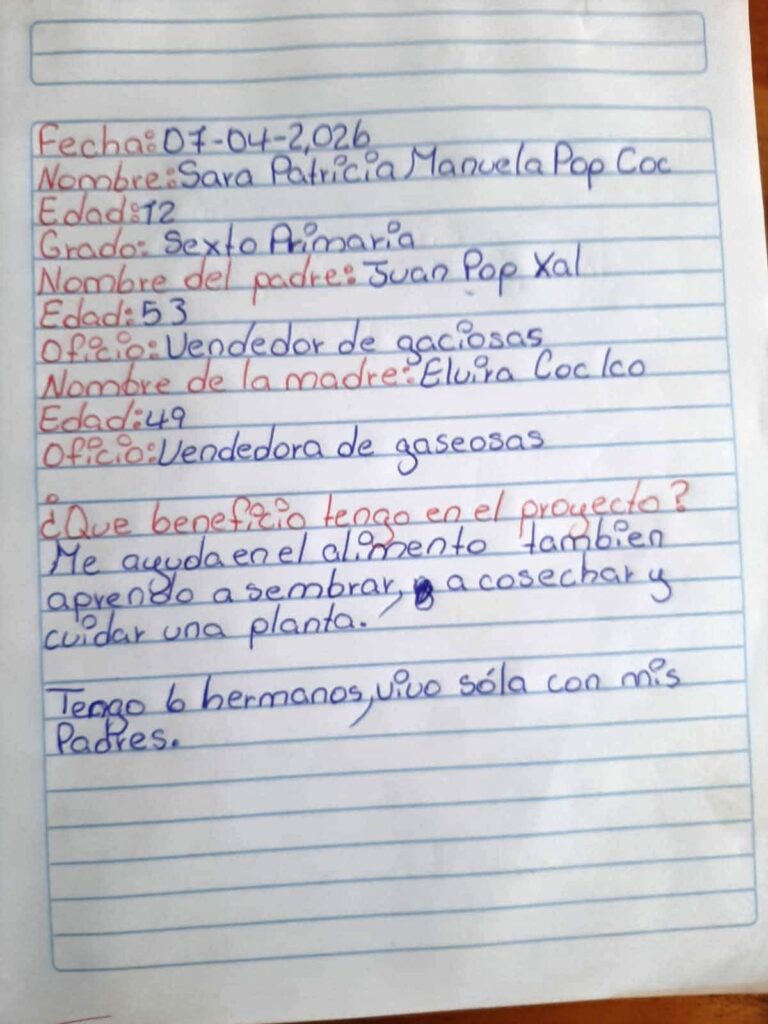 Fecha: 07-04-2,026
Nombre: Sara Patricia Manuela Pop Coc
Edad: 12
Grado: Sexto Primaria
Nombre del padre: Juan Pop Xal
Edad: 53
Oficio: Vendedor de gaciosas
Nombre de la madre: Elvira Coc Ico
Edad: 49
Oficio: Vendedora de gaseosas
¿Que beneficio tengo en el proyecto?
Me ayuda en el alimento tambien
aprendo a sembrar, a cosechar y
cuidar una planta.
Tengo 6 hermanos, vivo sóla con mis
Padres.